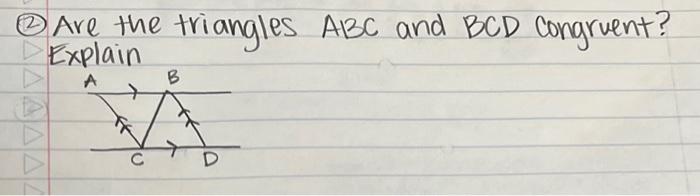 ② Are the triangles ABC and BCD congruent?
Explain
A B
C D